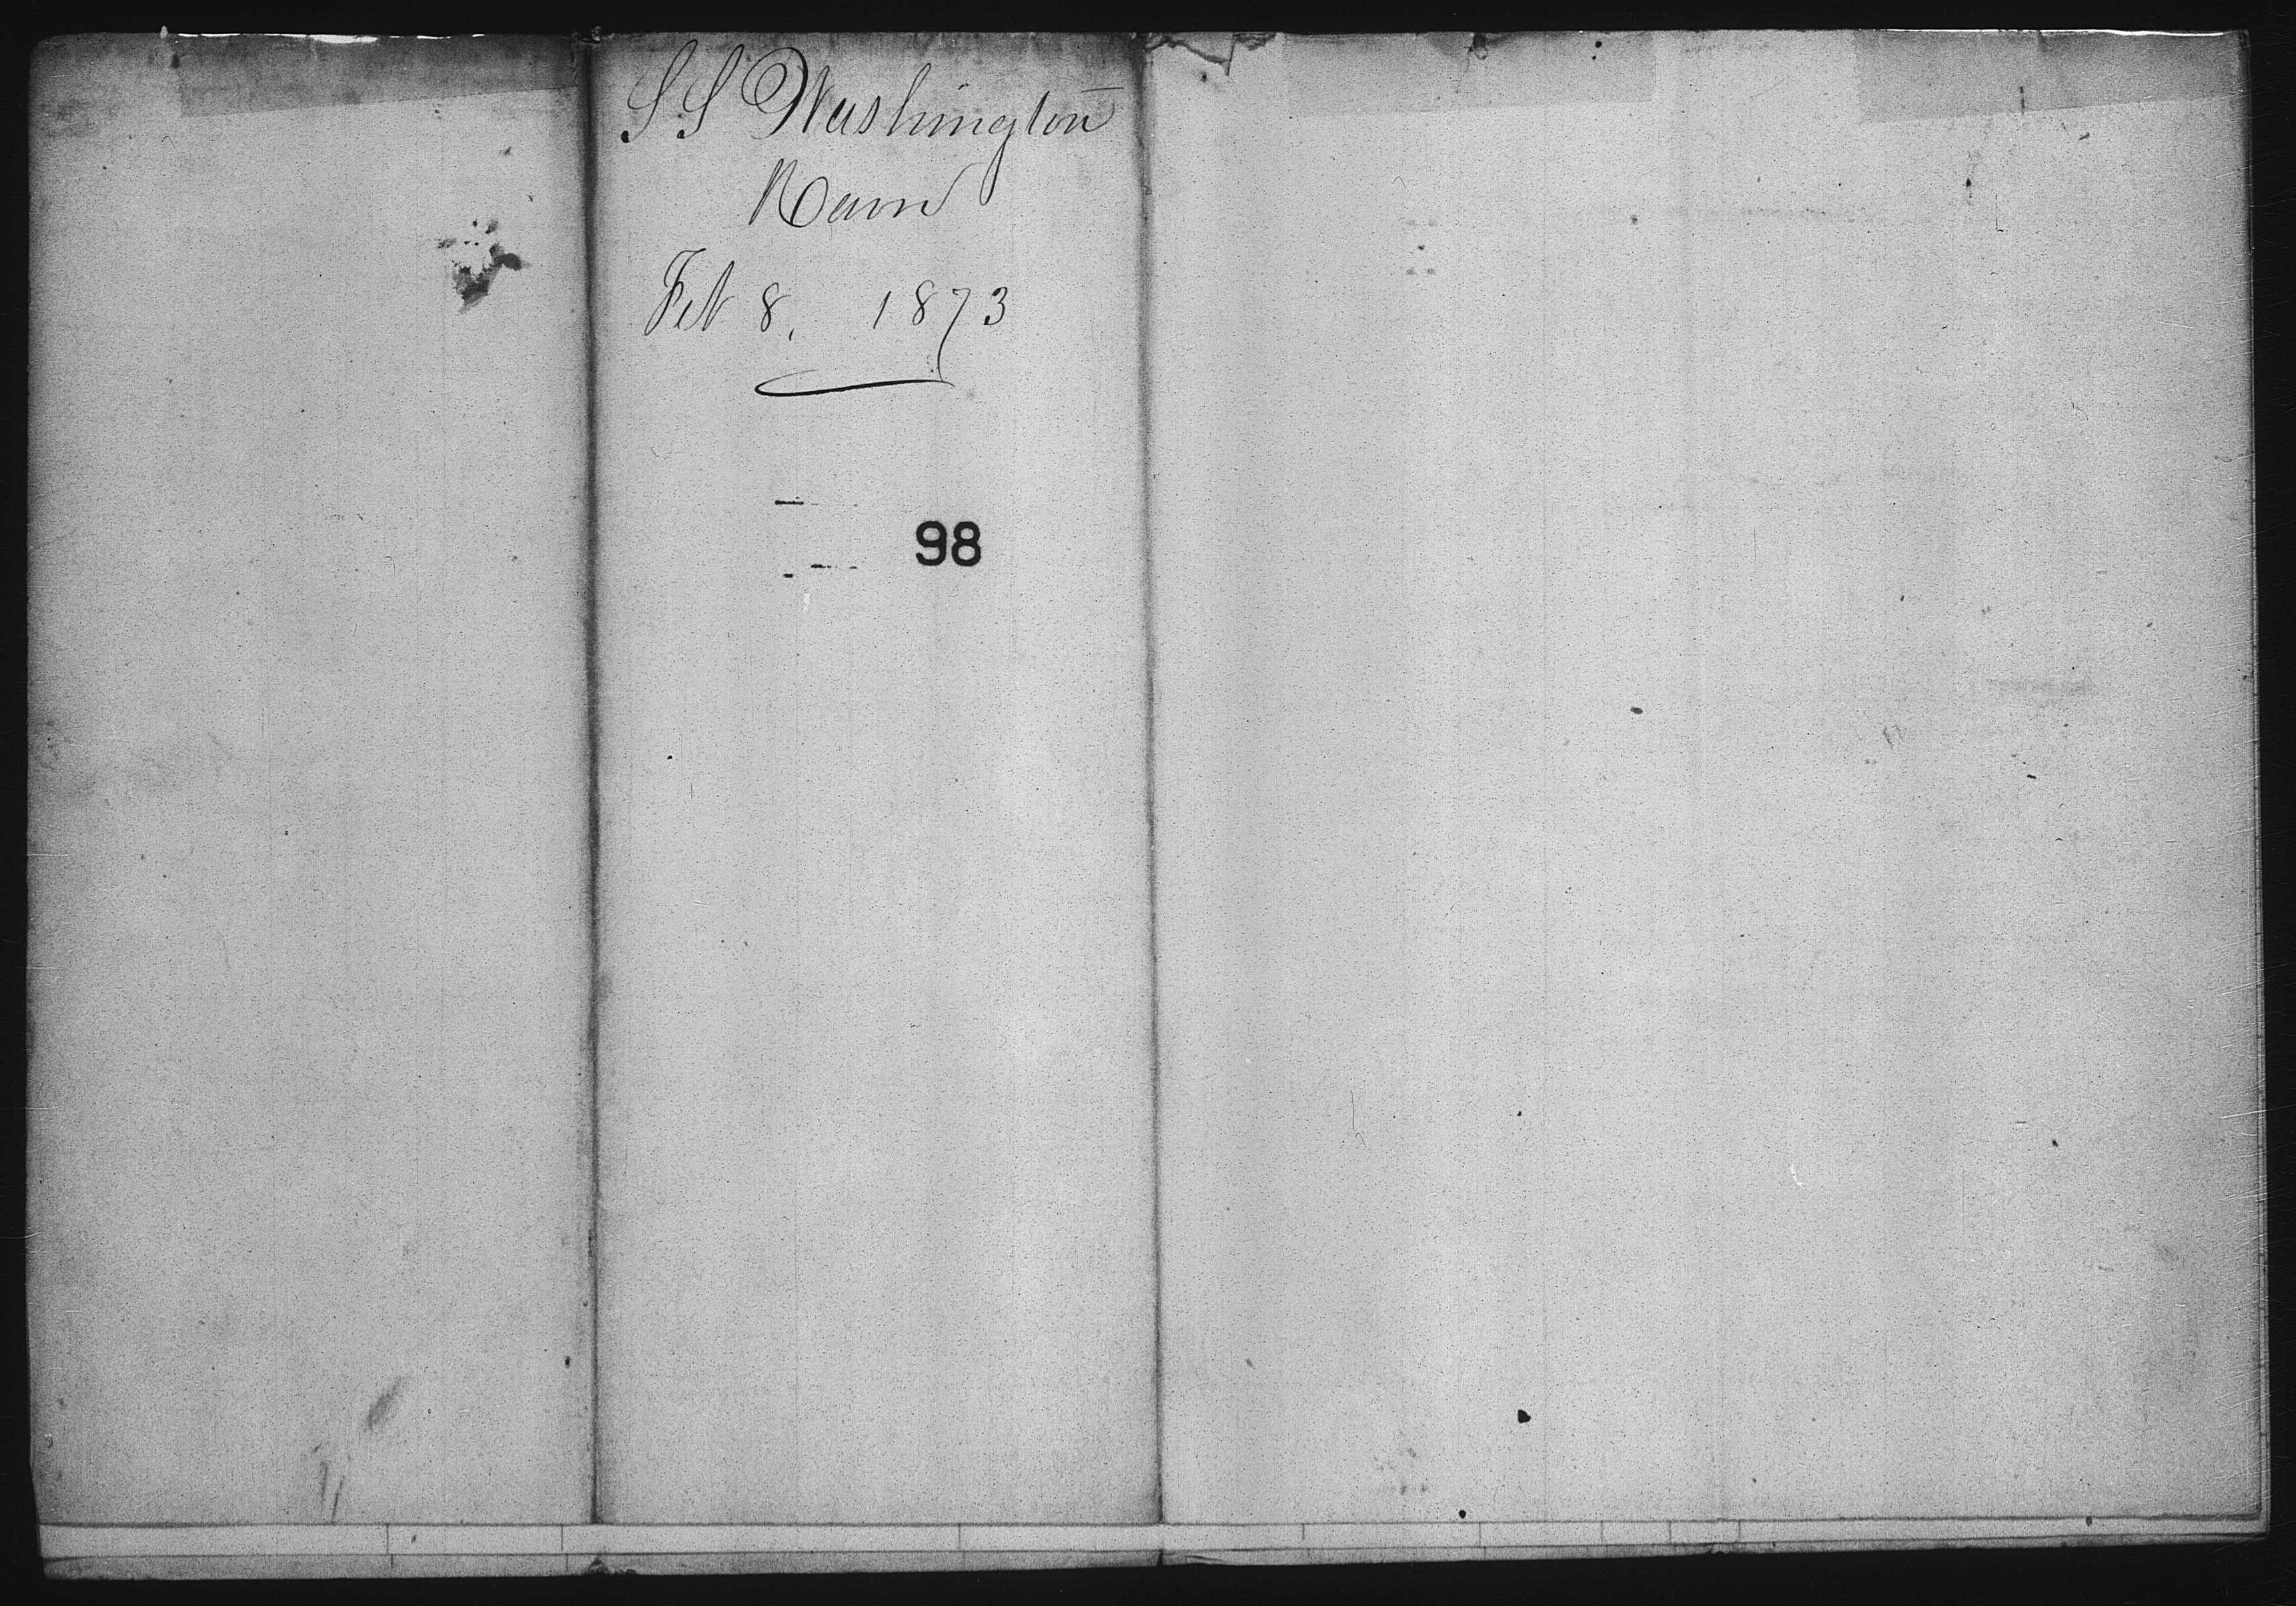 SS Washington
Feb 8. 1873
98